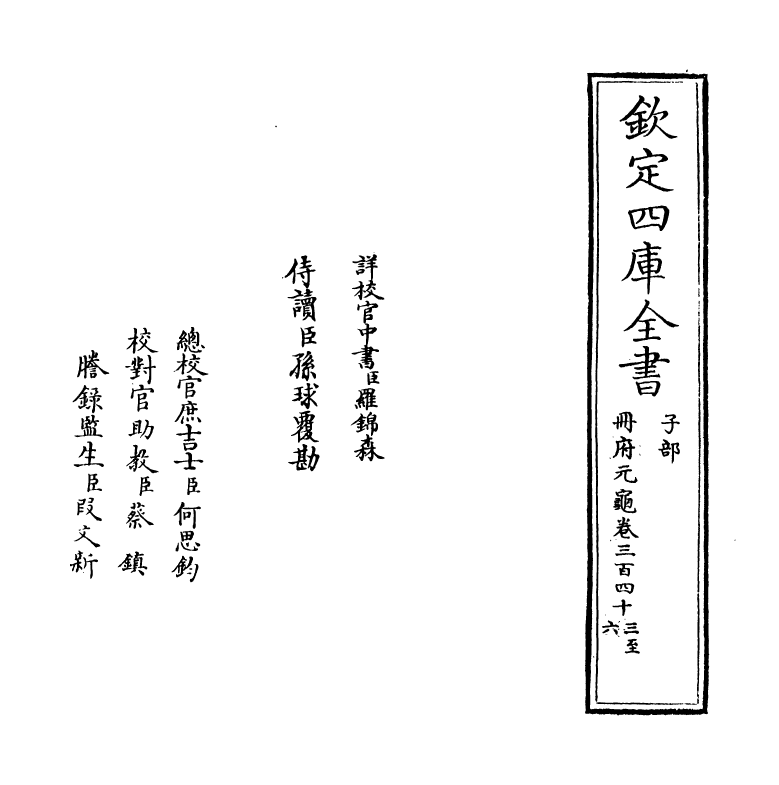 欽定四庫全書
子部
冊府元龜卷三百四十三至六
詳校官中書臣羅錦森
侍讀臣孫球覆勘
總校官庶吉士臣何思鈞
校對官助教臣蔡鎮
謄錄監生臣段文新